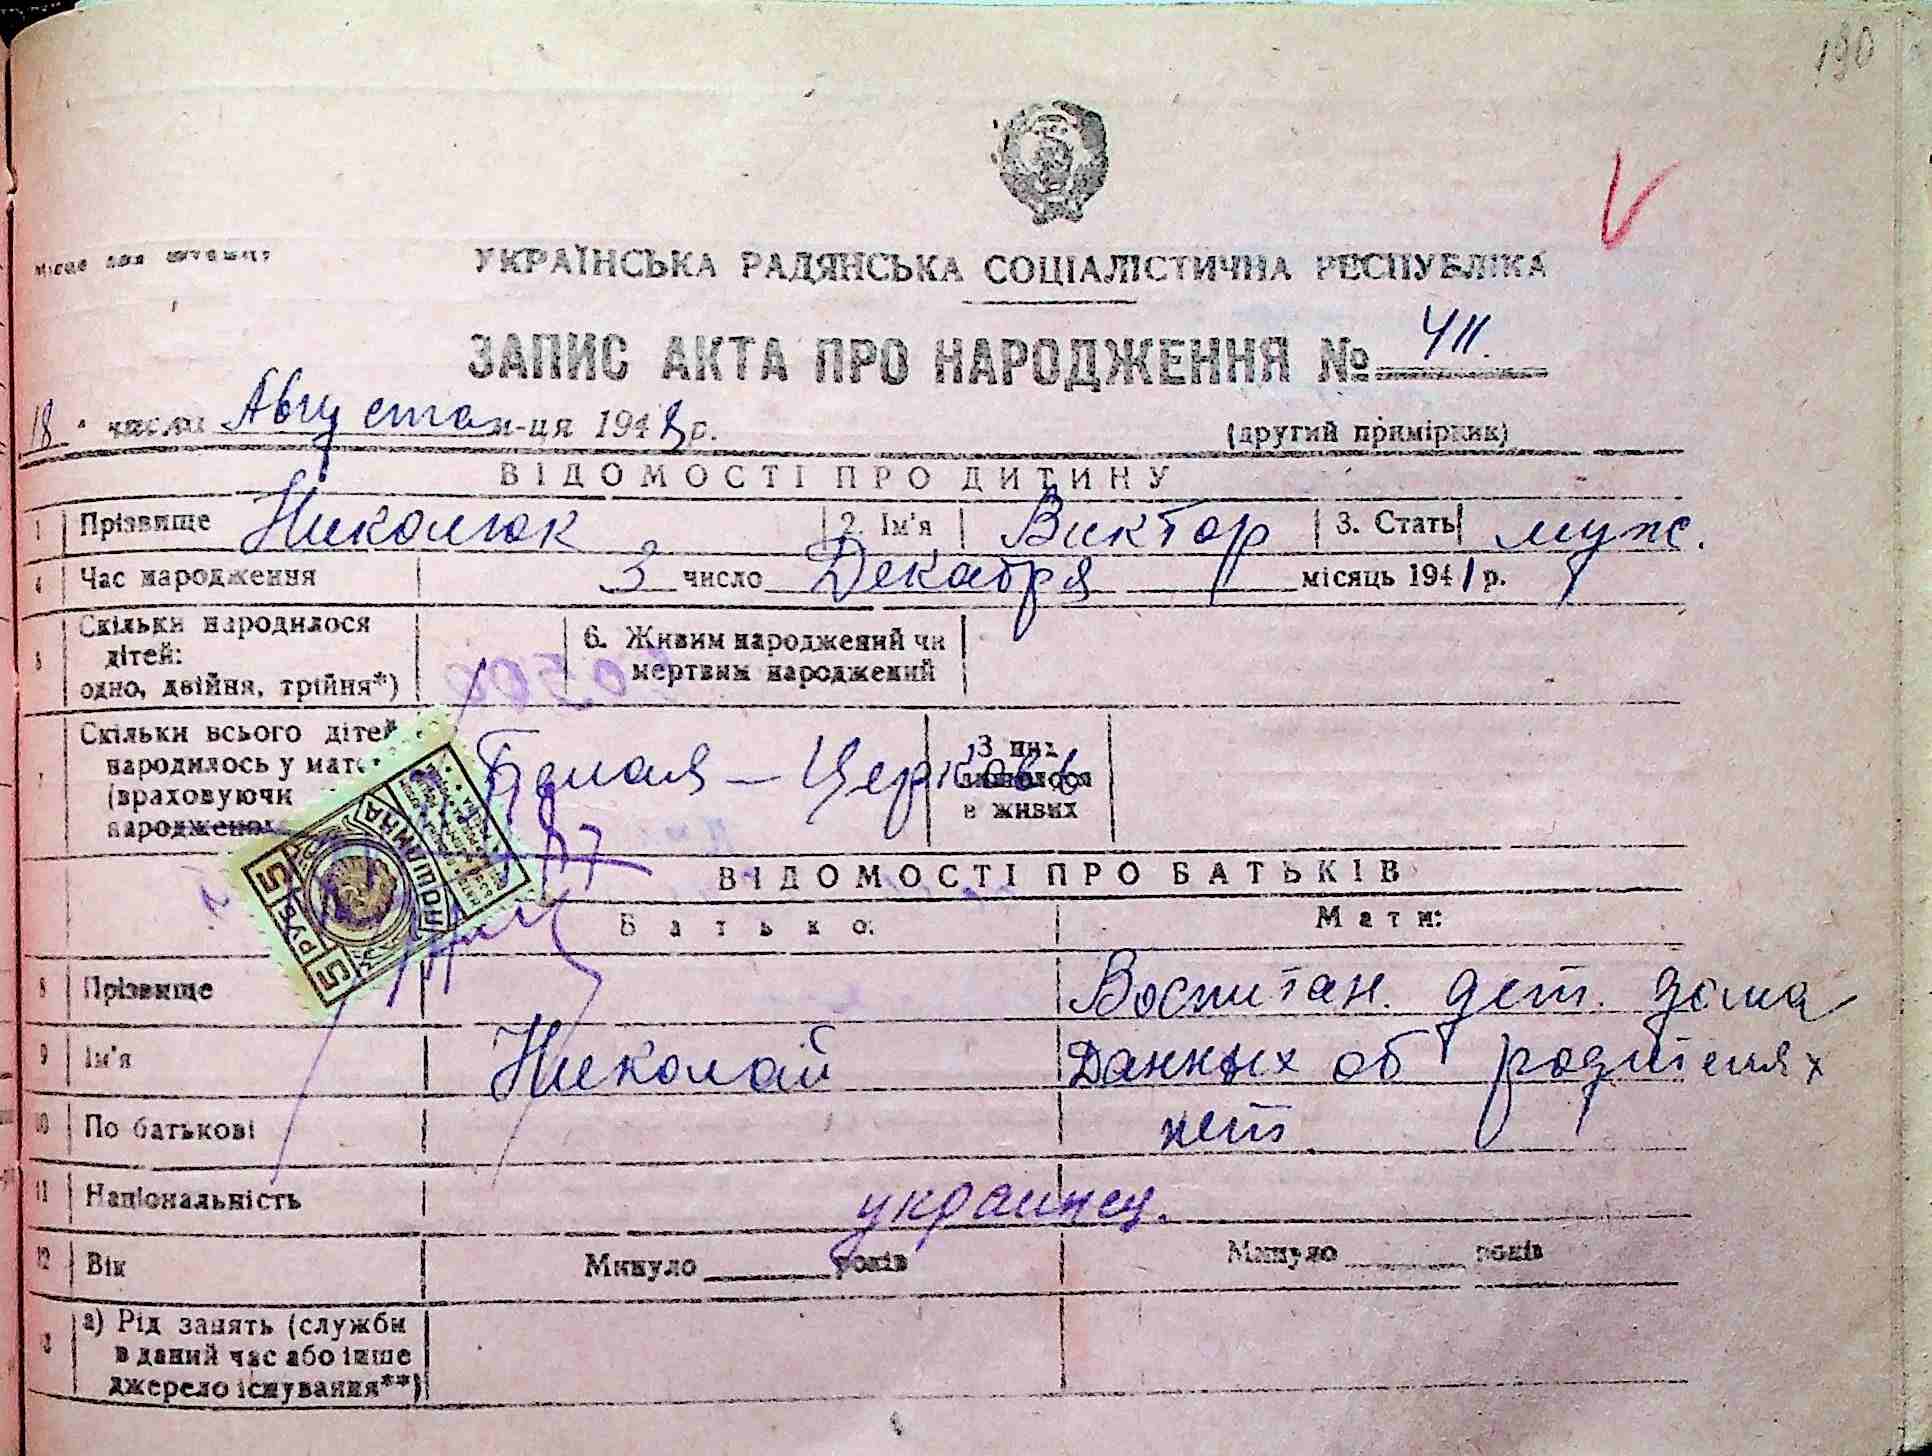 190
Місце для штампу
УКРАЇНСЬКА РАДЯНСЬКА СОЦІАЛІСТИЧНА РЕСПУБЛІКА
ЗАПИС АКТА ПРО НАРОДЖЕННЯ № 411.
18 числа Августа м-ця 1948 р. (другий примірник)
ВІДОМОСТІ ПРО ДИТИНУ
1 Прізвище Николюк 2. Ім'я Виктор 3. Стать муж.
4 Час народження 3 число Декабря місяць 1941 р.
5 Скільки народилося
дітей:
одно, двійня, трійня*)
6. Живим народжений чи
мертвим народжений
7 Скільки всього дітей
народилось у
(враховуючи
Белая-Церковь
З них
в живих
ВІДОМОСТІ ПРО БАТЬКІВ
Батько: Мати:
5 РУБ. 5
ПОШЛИНА
8 Прізвище Воспитан. дет. дома
9 Ім'я Николай Данных об родителях
10 По батькові нет
11 Національність украинец.
12 Вік Минуло років Минуло років
13 а) Рід занять (служби
в даний час або інше
джерело існування**)